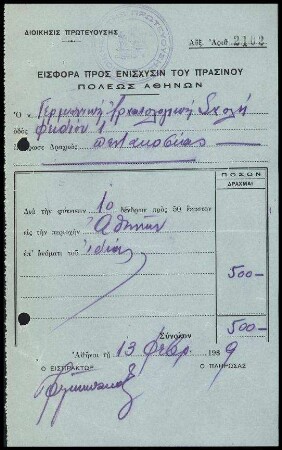 ΔΙΟΙΚΗΣΙΣ ΠΡΩΤΕΥΟΥΣΗΣ
Αὔξ. Ἀριθ. 2102
ΕΙΣΦΟΡΑ ΠΡΟΣ ΕΝΙΣΧΥΣΙΝ ΤΟΥ ΠΡΑΣΙΝΟΥ
ΠΟΛΕΩΣ ΑΘΗΝΩΝ
Ὁ κ. Γερμανική Ἀρχαιολογική Σχολή
ὁδὸς Φειδίου 1
Δραχμὰς πεντακοσίας
ΠΟΣΟΝ
ΔΡΑΧΜΑΙ
Διὰ τὴν φύτευσιν 10 δένδρων πρὸς 50 ἕκαστον
εἰς τὴν περιοχὴν Ἀθηνῶν
ἐπ' ὀνόματι τοῦ ἰδίου
500—
Σύνολον 500—
Ἀθῆναι τῇ 13 Φεβρ. 1939
Ο ΕΙΣΠΡΑΚΤΩΡ Ο ΠΛΗΡΩΣΑΣ